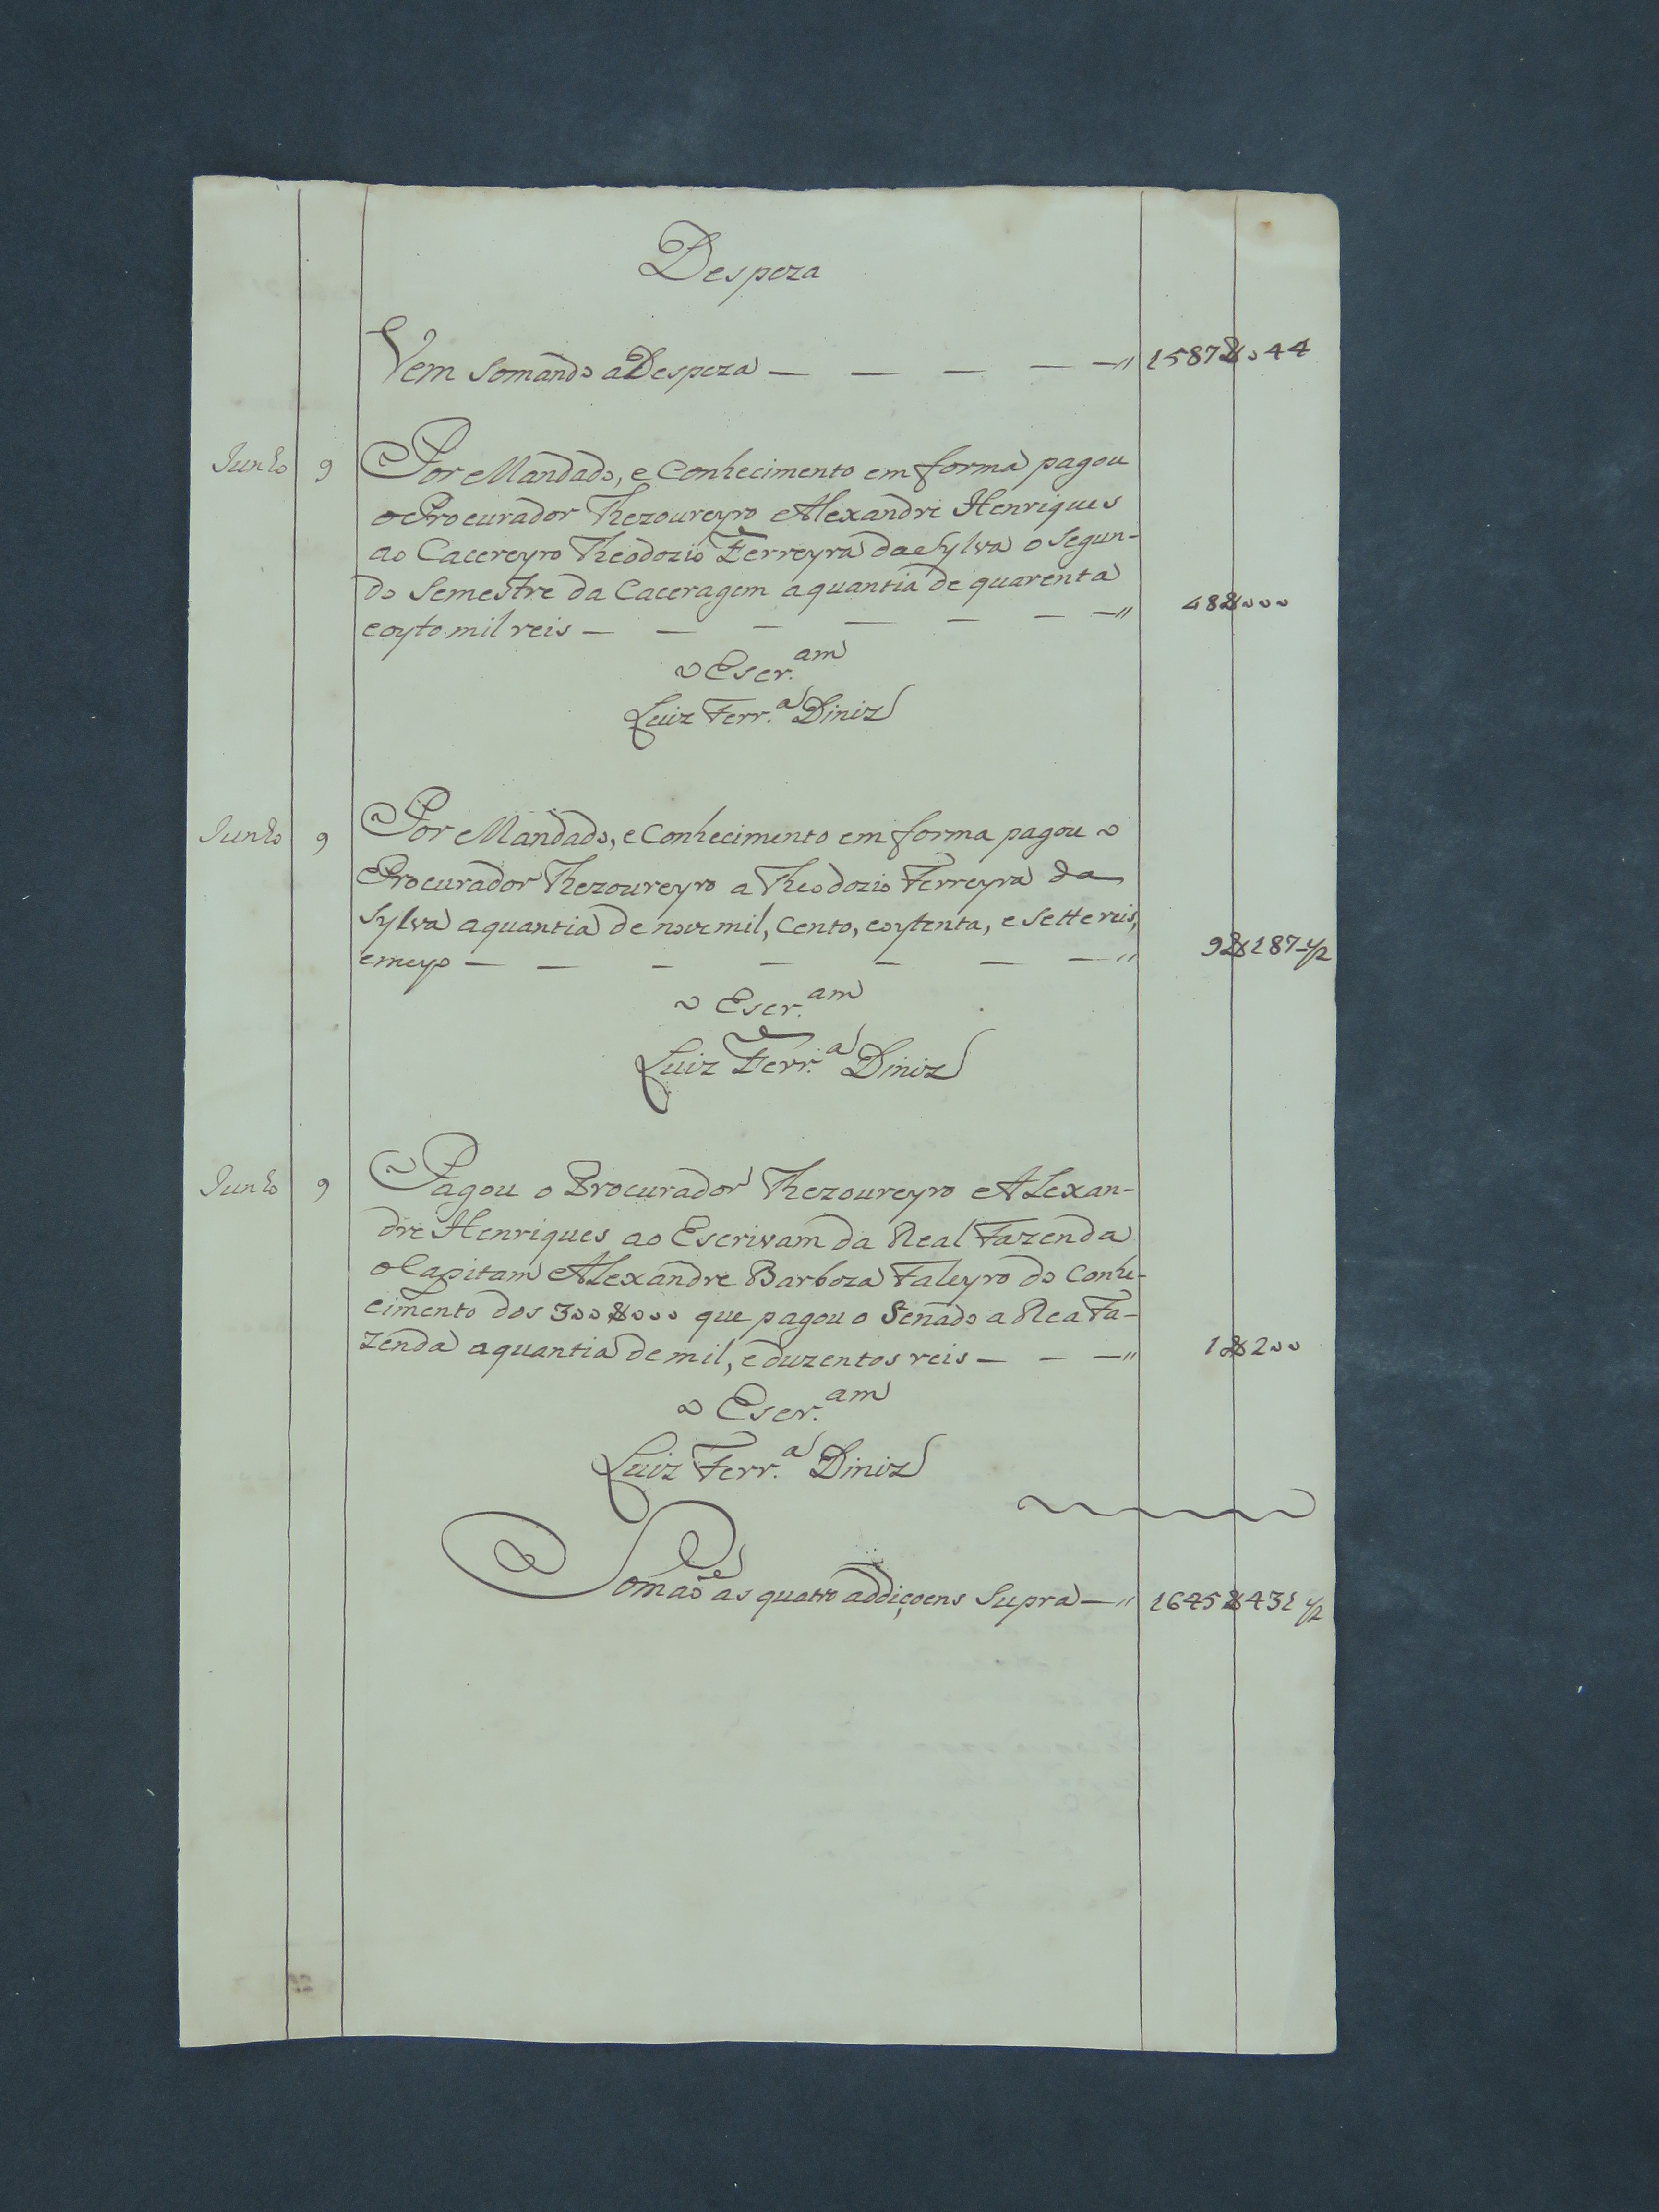 Despeza
Vem Somando a Despeza — — — — —" 1587$044
Junho 9 Por Mandado, e Conhecimento em forma pagou
o Procurador Thezoureyro Alexandre Henriques
ao Cacereyro Theodozio Ferreyra da Sylva o Segun-
do Semestre da Caceragem a quantia de quarenta
e oyto mil reis — — — — — — —" 48$000
o Escr.am
Luiz Ferr.a Diniz
Junho 9 Por Mandado, e Conhecimento em forma pagou o
Procurador Thezoureyro a Theodozio Ferreyra da
Sylva a quantia de nove mil, cento, e oytenta, e Sette reis,
e meyo — — — — — — —" 9$187-1/2
o Escr.am
Luiz Ferr.a Diniz
Junho 9 Pagou o Procurador Thezoureyro Alexan-
dre Henriques ao Escrivam da Real Fazenda
o Capitam Alexandre Barboza Faleyro do Conhe-
cimento dos 300$000 que pagou o Senado a Rea Fa-
zenda a quantia de mil, e duzentos reis — — —" 1$200
o Escr.am
Luiz Ferr.a Diniz
Somaõ as quatro addiçoens Supra —" 1645$431 1/2